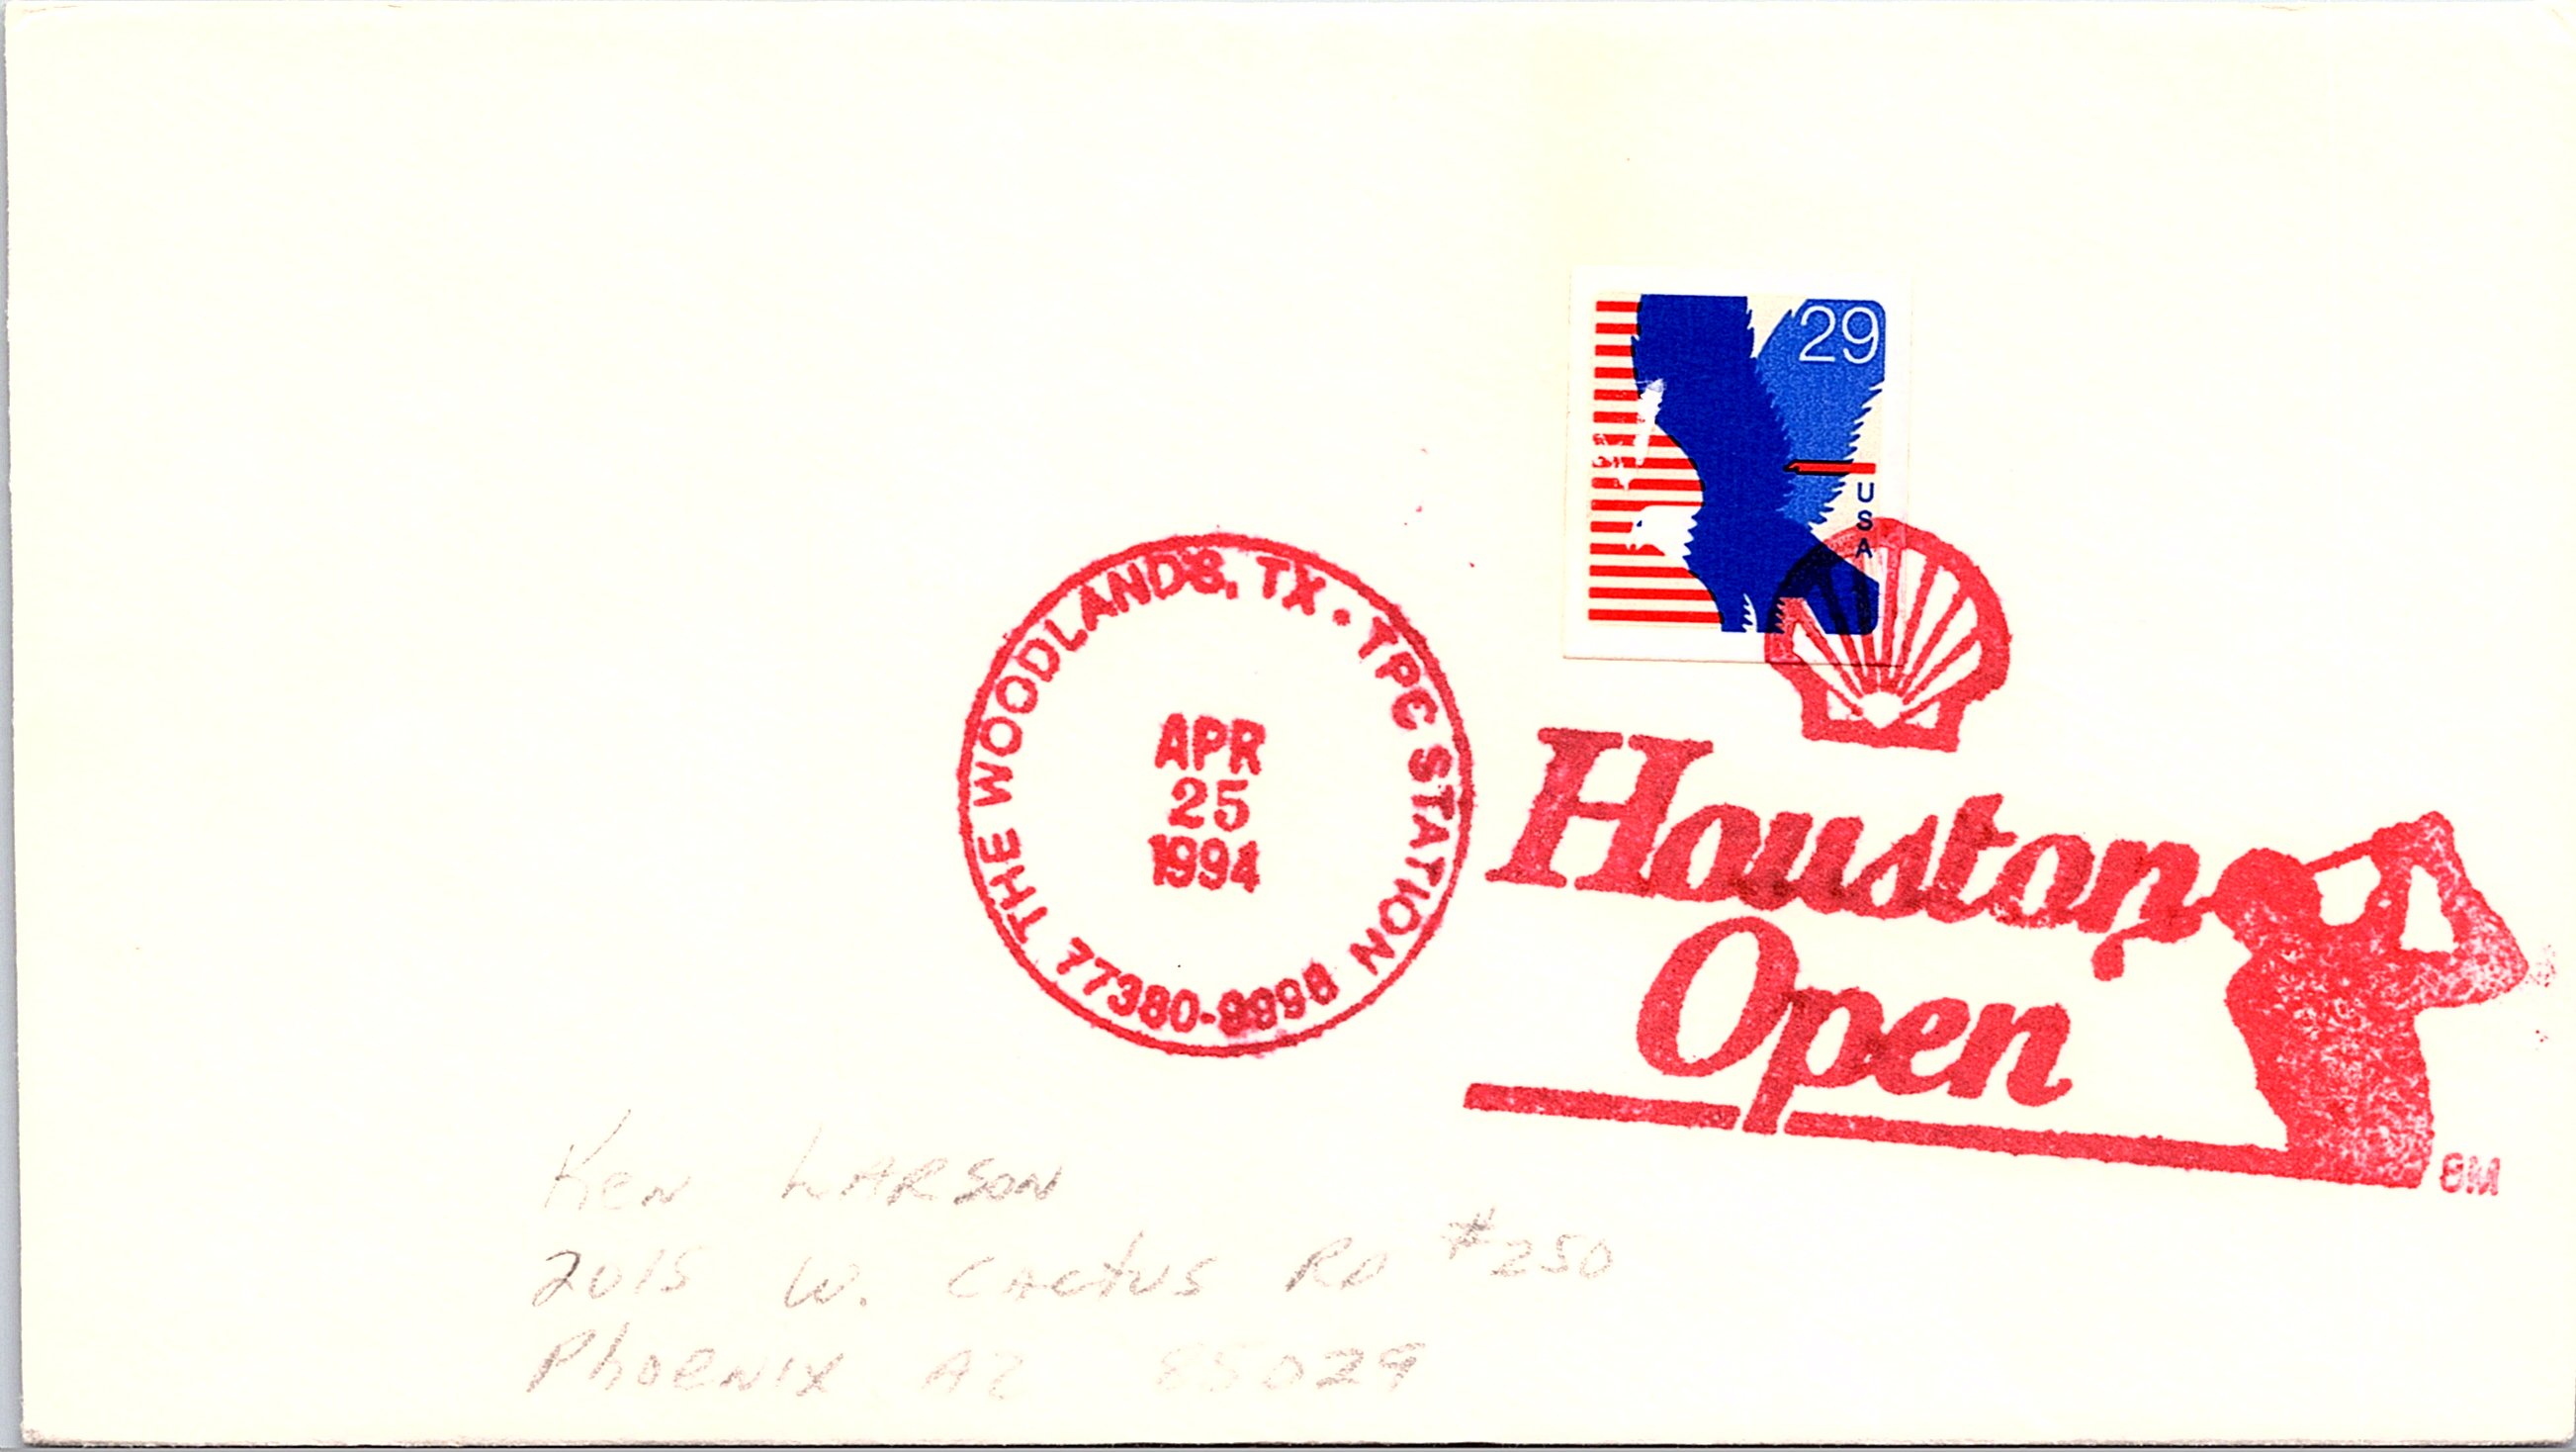 29
USA
THE WOODLANDS, TX • TPC STATION
APR
25
1994
77380-9998
Houston
Open
SM
Ken Larson
2015 W. Cactus Rd #250
Phoenix AZ 85029